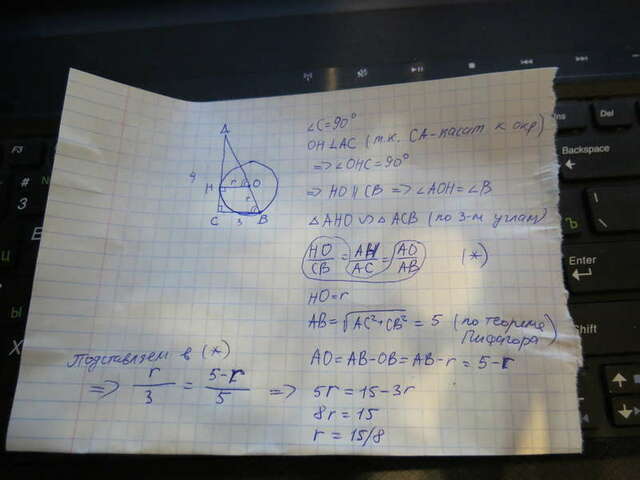 A
4
H
r
O
r
C
3
B
∠C=90°
OH∠AC (т.к. CA-касат. к окр)
=> ∠OHC=90°
=> HO || CB => ∠AOH=∠B
△AHO ∽ △ACB (по 3-м углам)
HO/CB = AH/AC = AO/AB (*)
HO=r
AB=√AC²+CB² = 5 (по теореме Пифагора)
AO=AB-OB=AB-r = 5-r
Подставляем в (*)
=> r/3 = 5-r/5 => 5r=15-3r
8r=15
r=15/8
F3
#
3
Ы
X
Ins
Del
Backspace
Ъ
Enter
Shift